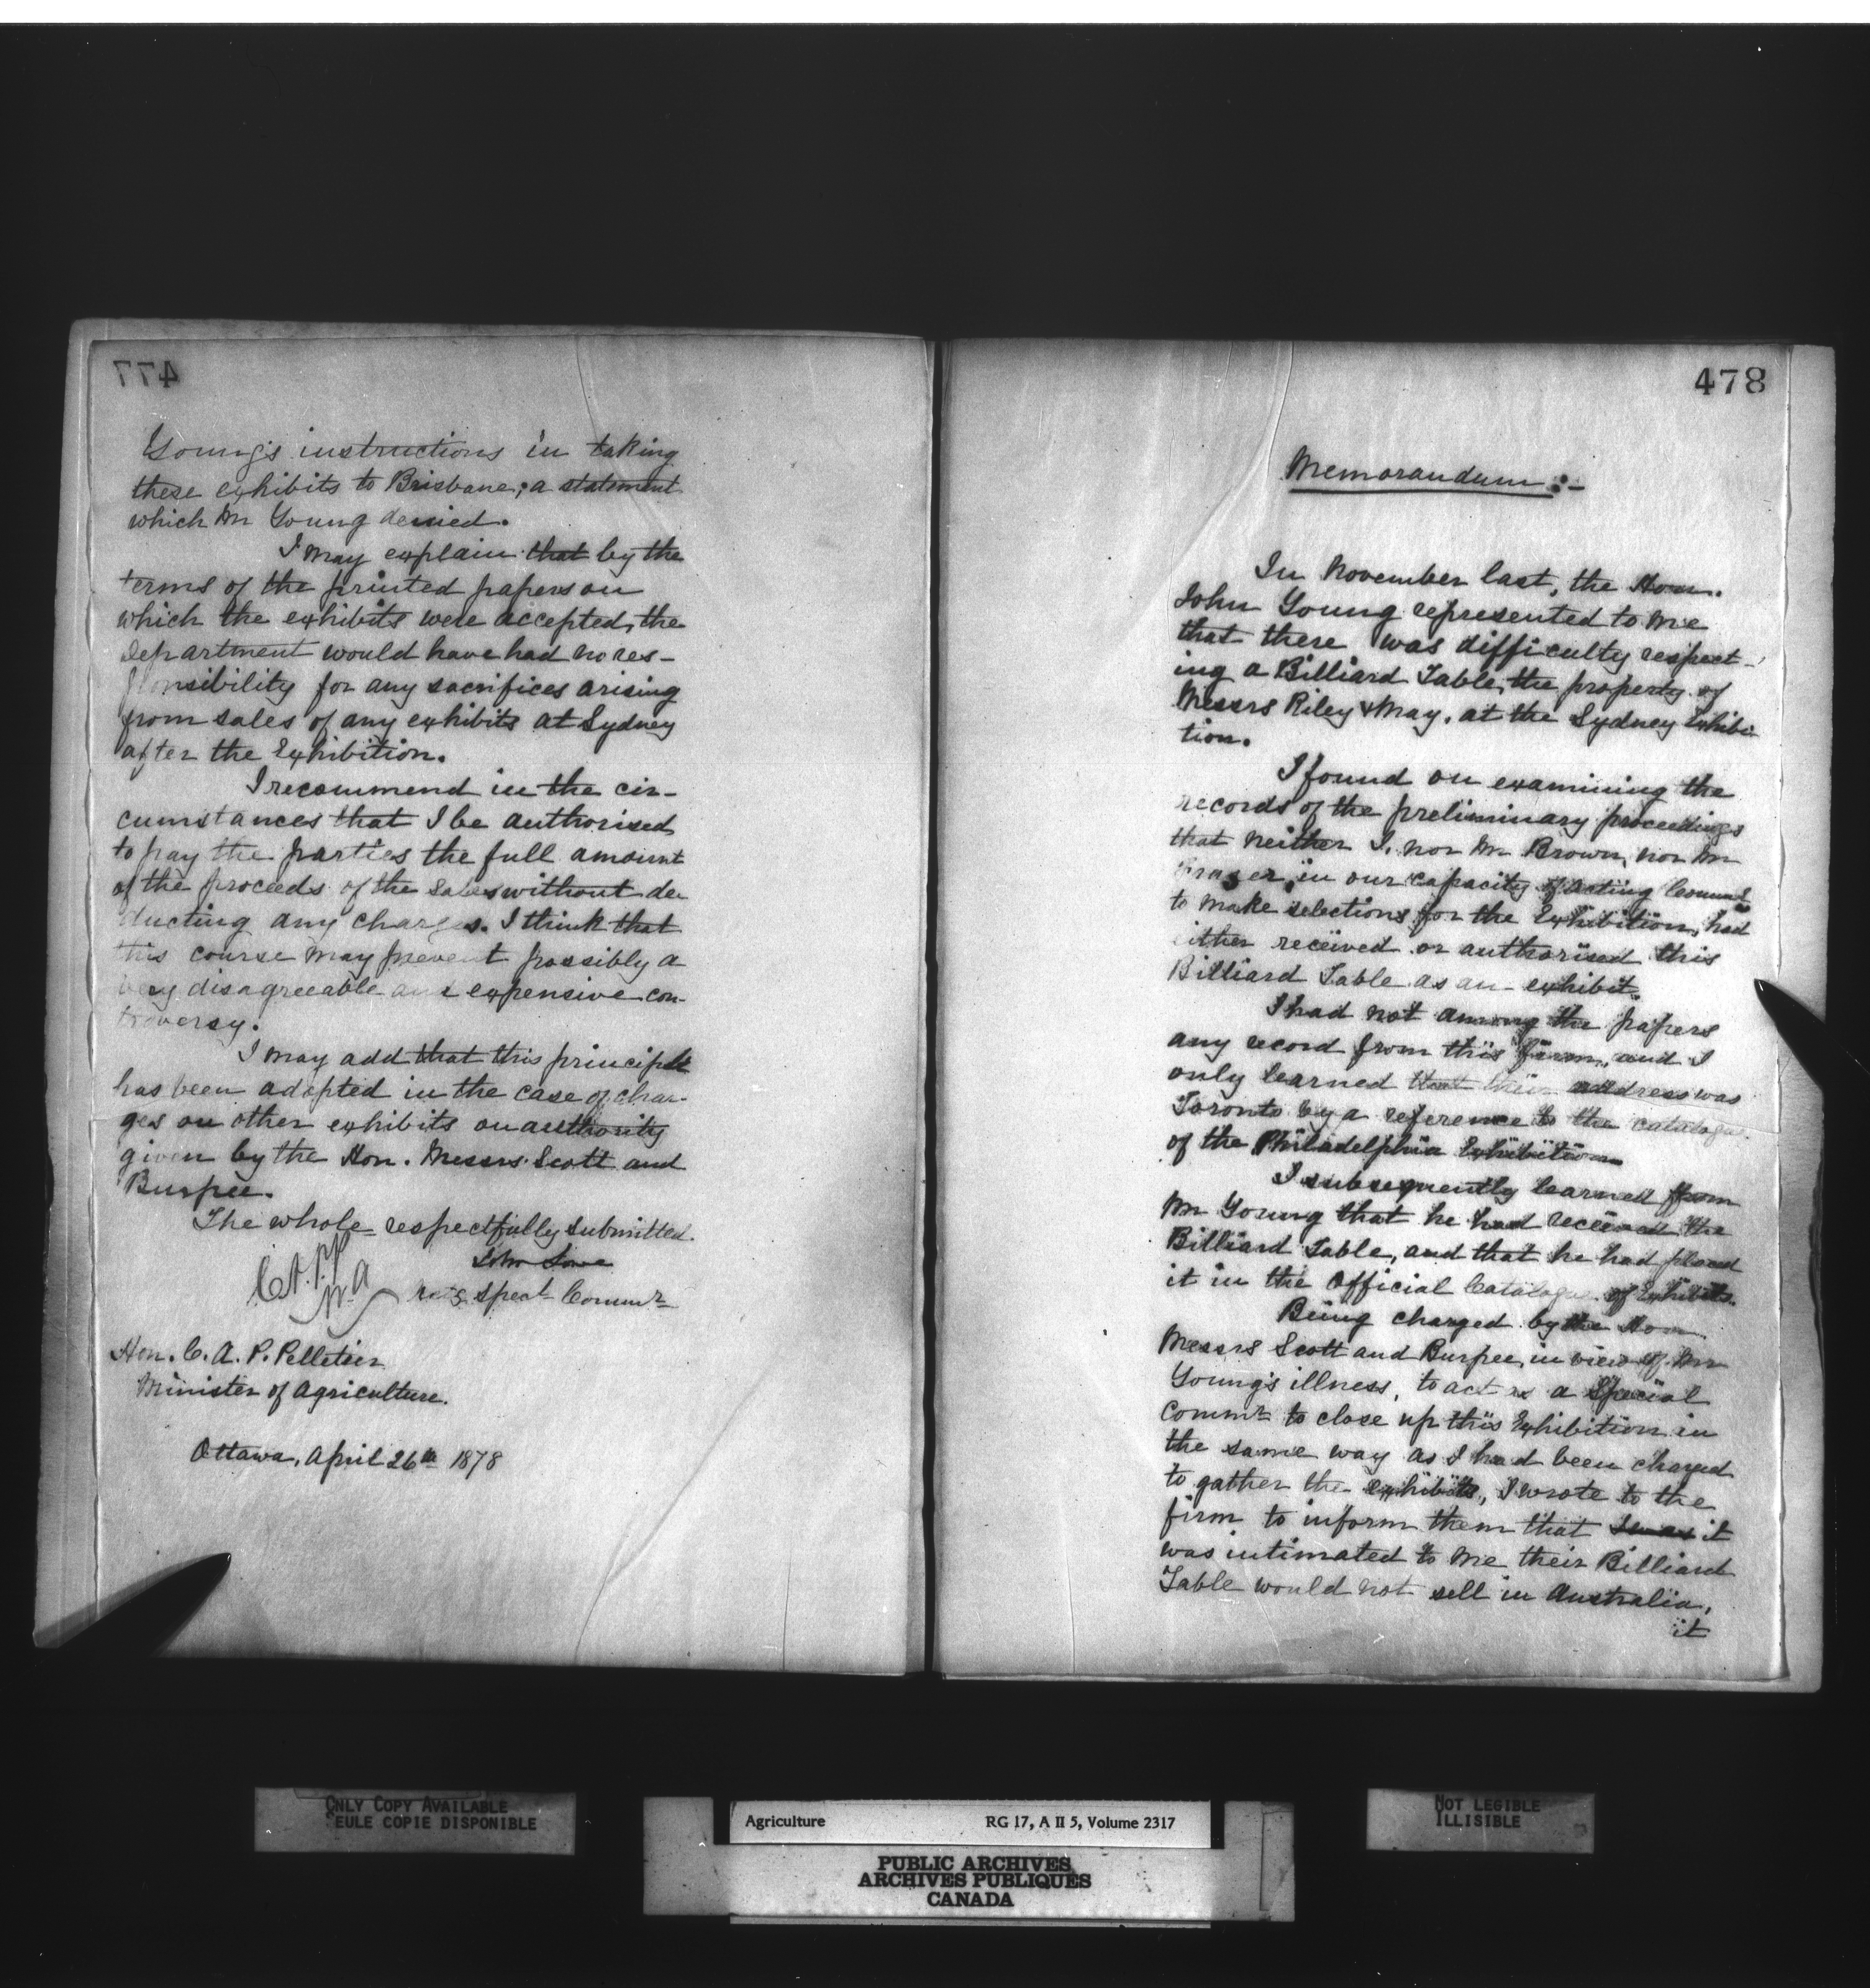 477
Young's instructions in taking
these exhibits to Brisbane; a statement
which Mr Young denied.
I may explain that by the
terms of the printed papers on
which the exhibits were accepted, the
Department would have had no res-
ponsibility for any sacrifices arising
from sales of any exhibits at Sydney
after the Exhibition.
I recommend in the cir-
cumstances that I be authorised
to pay the parties the full amount
of the proceeds of the sales without de-
ducting any charges. I think that
this course may prevent possibly a
very disagreeable and expensive con-
troversy.
I may add that this principle
has been adopted in the case of char-
ges on other exhibits on authority
given by the Hon. Messrs Scott and
Burpee.
The whole respectfully submitted.
John Lowe
C.A.P.P.
M.A
spect Commr
Hon. C. A. P. Pelletier
Minister of Agriculture.
Ottawa, April 26th 1878
478
Memorandum :-
In November last, the Hon.
John Young represented to me
that there was difficulty respect-
ing a Billiard Table, the property of
Messrs Riley & May, at the Sydney Exhibi-
tion.
I found on examining the
records of the preliminary proceedings
that neither I, nor Mr Brown, nor Mr
Fraser, in our capacity of acting Commrs
to make selections for the Exhibition, had
either received or authorised this
Billiard Table as an exhibit.
I had not among the papers
any record from this firm, and I
only learned that their address was
Toronto by a reference to the catalogue
of the Philadelphia Exhibition
I subsequently learned from
Mr Young that he had received the
Billiard Table, and that he had placed
it in the Official Catalogue of Exhibits.
Being charged by the Hon
Messrs Scott and Burpee, in view of Mr
Young's illness, to act as a Special
Commr to close up this Exhibition in
the same way as I had been charged
to gather the exhibits, I wrote to the
firm to inform them that it
was intimated to me their Billiard
Table would not sell in Australia,
it
ONLY COPY AVAILABLE
SEULE COPIE DISPONIBLE
Agriculture RG 17, A II 5, Volume 2317
PUBLIC ARCHIVES
ARCHIVES PUBLIQUES
CANADA
NOT LEGIBLE
ILLISIBLE